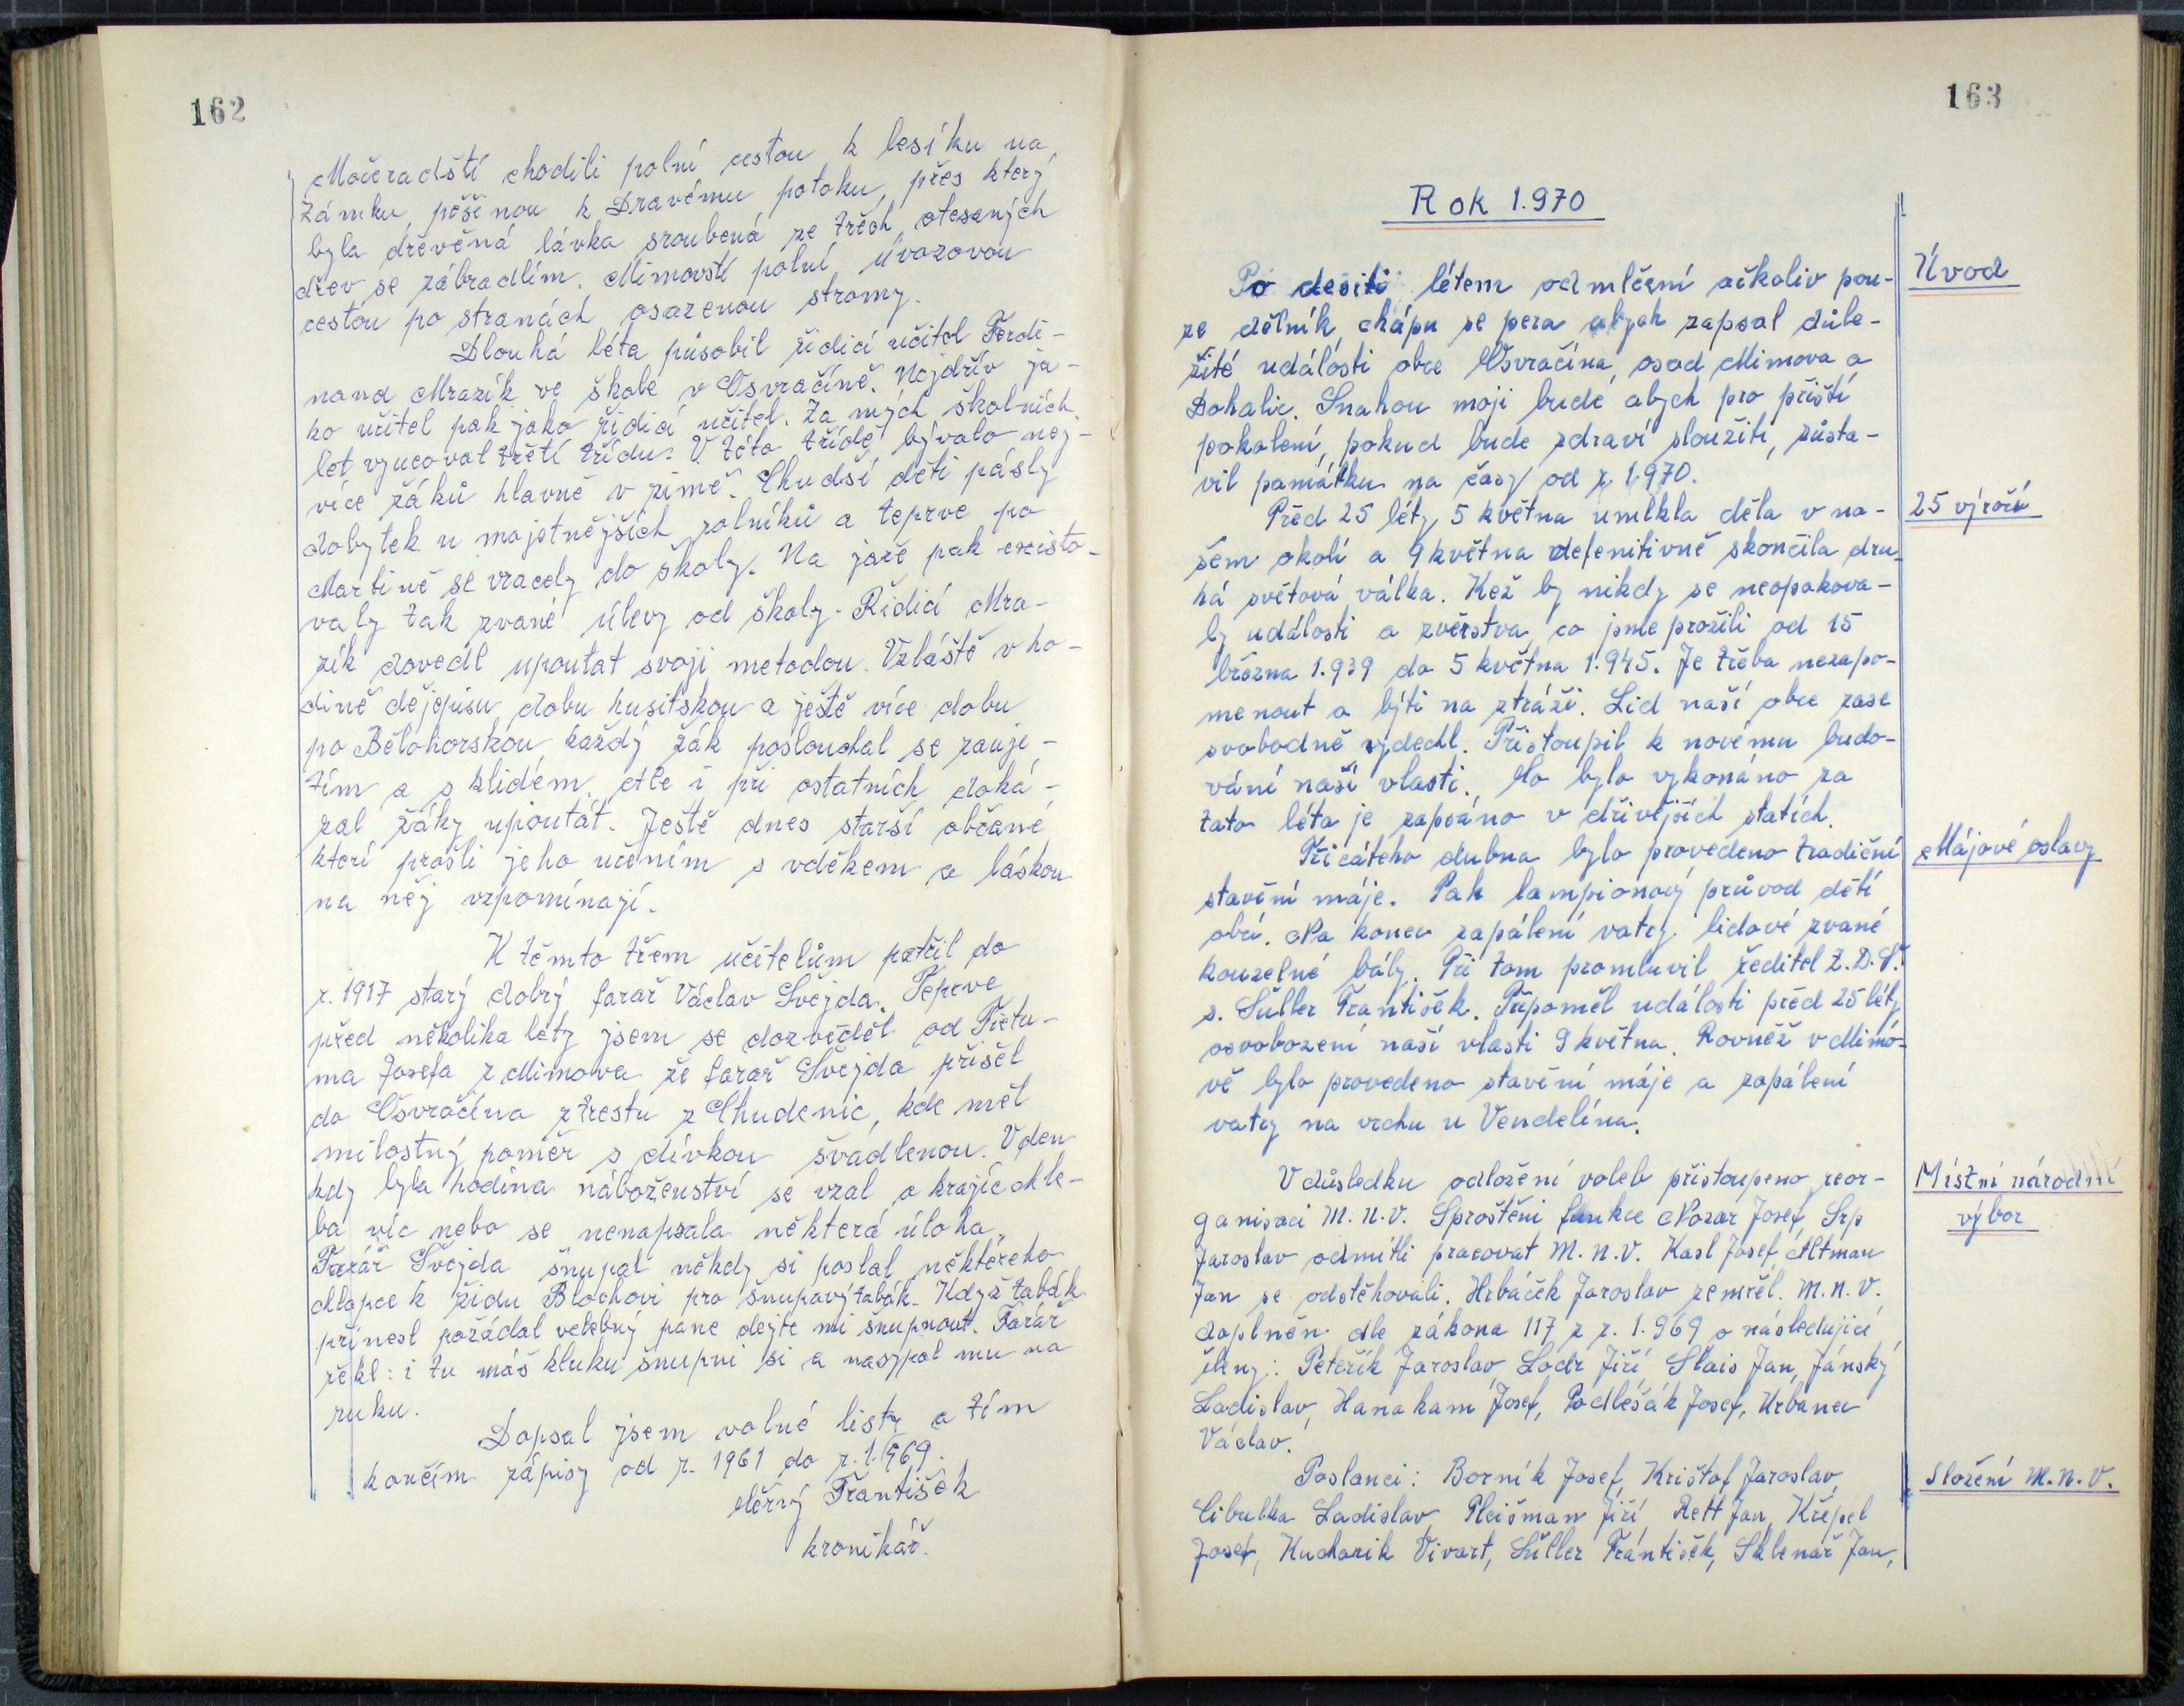 162
Močeradští chodili polní cestou k lesíku na
Zámku, pěšinou k Dravému potoku, přes který
byla dřevěná lávka sroubená ze třech otesaných
dřev se zábradlím. Mimovští polní úvozovou
cestou po stranách osazenou stromy.
Dlouhá léta působil řídicí učitel Ferdi-
nand Mrazík ve škole v Osvračíně. Nejdřív ja-
ko učitel pak jako řídicí učitel. Za mých školních
let vyucoval třetí třídu. V této třídě bývalo nej-
více žáků hlavně v zimě. Chudší děti pásly
dobytek u majetnějších rolníků a teprve po
Martině se vracely do školy. Na jaře pak existo-
valy tak zvané úlevy od školy. Řídicí Mra-
zík dovedl upoutat svoji metodou. Vzláště v ho-
dině dějepisu dobu husitskou a ještě více dobu
po Bělohorskou každý žák poslouchal se zauje-
tím a s klidém. Ale i při ostatních doká-
zal žáky upoutát. Ještě dnes starší občané
kteří prošli jeho učením s vděkem a láskou
na něj vzpomínají.
K těmto třem učitelům patřil do
r. 1917 starý dobrý farář Václav Švejda. Teprve
před několika léty jsem se dozvěděl od Tietu-
ma Josefa z Mimova že farář Švejda přišel
do Osvračína z trestu z Chudenic, kde měl
milostný poměr s dívkou švadlenou. V den
kdy byla hodina náboženství se vzal o krajíc chle-
ba víc nebo se nenapsala některá úloha.
Farář Švejda šnupal někdy si poslal některého
chlapce k židu Blochovi pro šnupavý tabák. Když tabák
přinesl požádal velebný pane dejte mi šnupnout. Farář
řekl: i tu máš kluku šnupni si a nasypal mu na
ruku.
Dopsal jsem volné listy a tím
končím zápisy od r. 1961 do r. 1.969.
Černý František
kronikář.
163
Rok 1.970
Úvod
Po desíti létem odmlčení ačkoliv pou-
ze dělník, chápu se pera abych zapsal důle-
žité události obce Osvračína, osad Mimova a
Dohalic. Snahou moji bude abych pro příští
pokolení, pokud bude zdraví sloužiti, zůsta-
vil památku na časy od r. 1.970.
25 výročí
Před 25 léty, 5 května umlkla děla v na-
šem okolí a 9 května defenitivně skončila dru-
há světová válka. Kež by nikdy se neopakova-
ly události a zvěrstva co jsme prožili od 15
března 1.939 do 5 května 1.945. Je třeba nezapo-
menout a býti na stráži. Lid naší obce zase
svobodně vydechl. Přistoupil k novému budo-
vání naší vlasti. Co bylo vykonáno za
tato léta je zapsáno v dřívějších statích.
Májové oslavy
Třicátého dubna bylo provedeno tradiční
stavění máje. Pak lampionový průvod dětí
obcí. Na konec zapálení vatry lidově zvané
kouzelné bály. Při tom promluvil ředitel Z.D.Š.
s. Šuller František. Připoměl události před 25 léty
osvobození naší vlasti 9 května. Rovněž v Mimo-
vě bylo provedeno stavění máje a zapálení
vatry na vrchu u Vendelína.
Místní národní
výbor
V důsledku odložení voleb přistoupeno reor-
ganisaci M.N.V. Sproštěni funkce Nozar Josef, Srp
Jaroslav odmítli pracovat M.N.V. Kasl Josef, Altman
Jan se odstěhovali. Hrbáček Jaroslav zemřel. M.N.V.
doplněn dle zákona 117 z r. 1.969 o následující
členy: Peteřík Jaroslav, Lodr Jiří, Slais Jan, Jánský
Ladislav, Hanakam Josef, Podlešák Josef, Urbanec
Václav.
Složení M.N.V.
Poslanci: Borník Josef, Krištof Jaroslav,
Cibulka Ladislav, Pleišman Jiří Rett Jan, Křepel
Josef, Kucharik Vivart, Šuller František, Sklenář Jan,